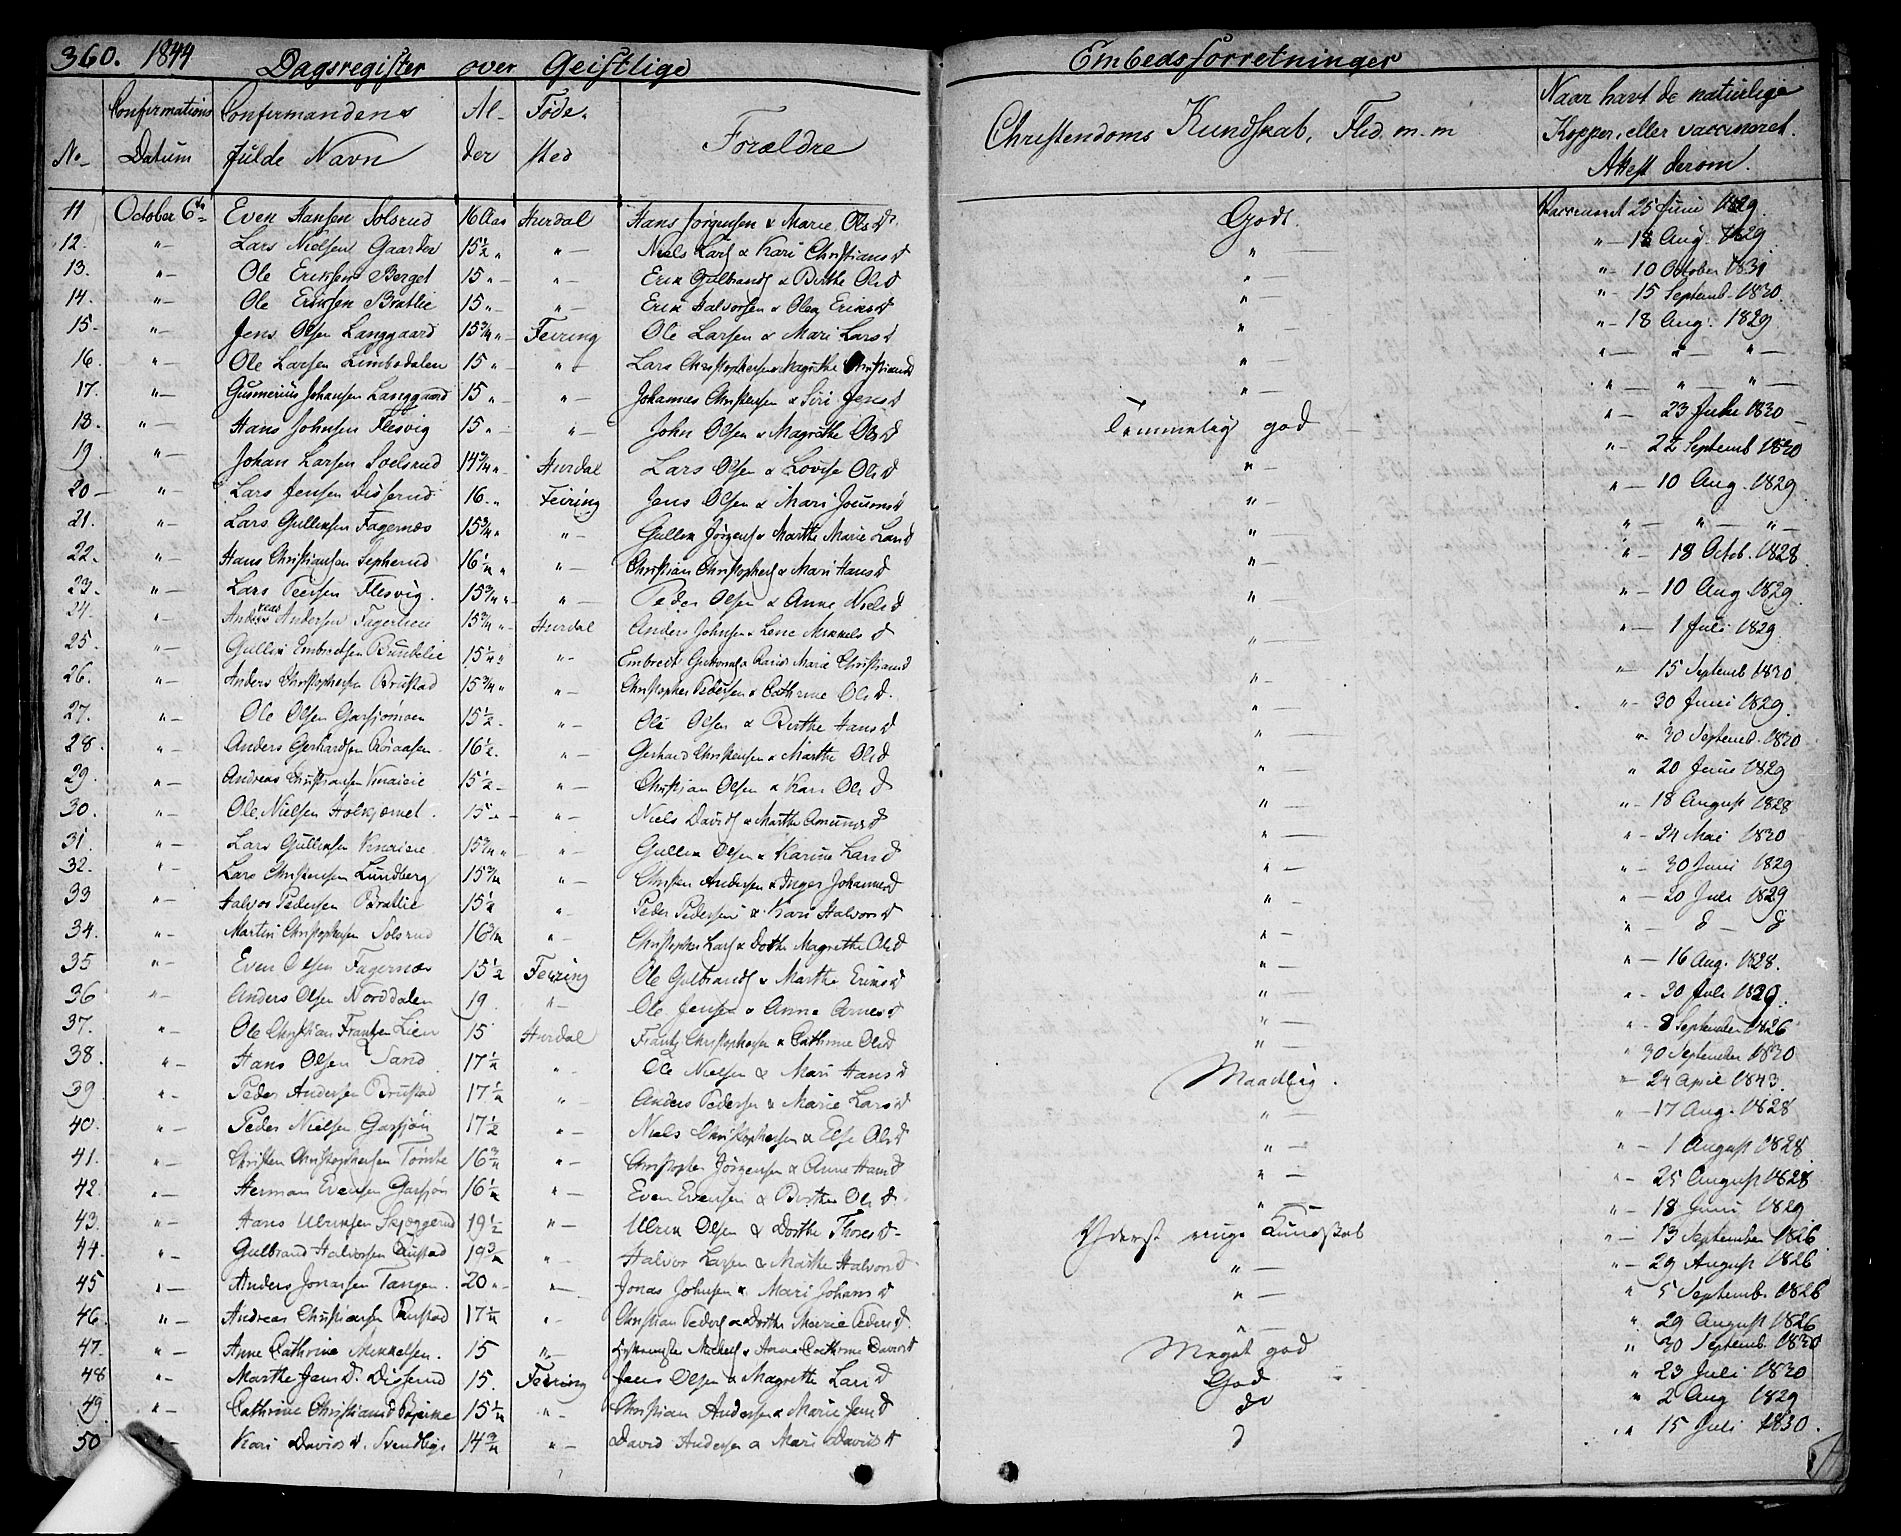 360. 1844 Dagsregister over Geistlige Embedsforretninger
No Confirmations Datum Confirmandens fulde Navn Alder Føde-sted Forældre Christendoms Kundskab, Flid m.m Naar havt de naturlige Kopper, eller vaccineret. Attest derom.
11 October 6te Even Hansen Solsrud 16 Aar Hurdal Hans Jørgensen & Marie OlsD. Godt. Vaccineret 25 Juni 1829.
12. "– Lars Nielsen Gaarder 15½ " "– Niels Lars & Kari ChristiansD " "– 18 Aug. 1829
13. "– Ole Eriksen Berget 15 "– "– Erik Gulbrands & Berthe OlsD "– "– 10 October 1831
14. "– Ole Eriksen Bratlie 15 "– "– Erik Halvorsen & Olea EriksD "– "– 15 Septemb. 1830.
15– "– Jens Olsen Langgaard 15¾ "– Feiring Ole Larsen & Mari LarsD "– "– 18 Aug. 1829
16. "– Ole Larsen Limbodalen 15 "– "– Lars Christophersen & Magrethe ChristiansD "– "– "– "–
17. "– Gusmerius Johansen Langgaard 15 "– "– Johannes Christensen & Siri JensD "– "– "– "–
18. "– Hans Johnsen Flesvig 15 "– "– John Olsen & Magrethe OlsD Temmelig god "– 23 1830
19. "– Johan Larsen Soelsrud 14¾ "– Hurdal Lars Olsen & Lovise OlsD "– "– 22 Septemb 1830
20– "– Lars Jensen Disserud 16. " Feiring Jens Olsen & Mari "– "– 10 Aug. 1829
21. "– Lars Gulliksen Fagernæs 15¾ " "– Gullik Jørgens & Marthe Marie LarsD "– "– "– "–
22. "– Hans Christiansen Sepherud 16½ " "– Christian Christophers & Mari HansD "– "– 18 Octob. 1828.
23. "– Lars Peersen Flesvig. 15¾ "– "– Peder Olsen & Anne NielsD "– "– 10 Aug. 1829
24. "– Andersen Fagerlien 15¾ "– Hurdal Anders Johnsen & Lene MikkelsD "– "– 1 Juli 1829
25. "– Gullik Embretsen Bundlie 15½ " "– Embret & Marie ChristiansD "– "– 15 Septemb 1830.
26. "– Anders Christophersen Brustad 15¾ " "– Christopher Pedersen & Cathrine OlsD. "– "– 30 Juni 1829.
27. "– Ole Olsen Garsjømoen 15½ – "– Ole Olsen & Berthe HansD "– "– 30 Septemb. 1830
28. "– Anders Gerhardsen Røiaasen 16½. "– Gerhard Christensen & Marthe OlsD "– " 20 Juni 1829
29. "– Andreas Christiansen Knaiie 15½ – "– Christian Olsen & Kari OlsD "– "– 18 August 1828
30. "– Ole Nielsen 15 "– "– Niels Davids & Marthe AmundsD "– "– 24 Mai 1830
31. "– Lars Gulliksen 15¾ "– "– Gullik Olsen & Karine LarsD "– "– 30 Juni 1829
32. "– Lars Christensen Lundberg 15¾ "– Christen Andersen & Inger JohannesD "– "– 20 Juli 1829
33 "– Halvor Pedersen Bratlie 15½ " Peder Pedersen & Kari HalvorsD "– "– d – d
34. "– Martin Christophersen Solsrud 16¾ "– Christopher Lars & Dorthe Magrethe OlsD "– "– 16 Aug. 1828.
35 "– Even Olsen Fagernæs 15½ Feiring Ole Gulbrands & Marthe EriksD "– "– 30 Juli 1829.
36 "– Anders Olsen Norddalen 19. "– Ole Jensen & Anne ArnesD "– "– 8 September 1826
37. "– Ole Christian Frantzen Lien 15 Hurdal Frantz Christophersen & Cathrine OlsD "– " 30 September 1830
38. "– Hans Olsen Sand 17½ " Ole Nielsen & Mari HansD Maadelig. "– 24 April 1843.
39. "– Peder Andersen Brustad 17½ "– Anders Pedersen & Marie LarsD "– "– 17 Aug. 1828
40. "– Peder Nielsen Garsjøn 17½ "– Niels Christophersen & Else OlsD "– "– 1 August 1828
41. "– Christen Christophersen Tømte 16¾ "– Christopher Jørgensen & Anne HansD "– "– 25 August 1828
42. "– Herman Evensen Garsjøn 16½ "– Even Evensen & Berthe OlsD "– "– 18 Juni 1829
43. "– Hans Ulriksen Skjeggerud 19½ "– Ulrik Olsen & Dorthe ThoresD. Yderst ringe Kundskab "– 13 September 1826
44. "– Gulbrand Halvorsen Rustad 19¾ "– Halvor Larsen & Marthe HalvorsD "– "– 29 August 1826
45 "– Anders Jonassen Tangen 20 "– "– Jonas Johnsen & Mari JohansD "– " 5 Septemb. 1826
46. "– Andreas Christiansen Rustad 17½ "– Christian Peders & Dorthe Marie PedersD. "– " 29 August 1826
47. "– Anne Cathrine Mikkelsen. 15 "– Mikkels & Anne Cathrine DavidsD Meget god " 30 Septemb. 1830
48 "– Marthe JensD. Disserud 15. Feiring Jens Olsen & Magrethe LarsD God " 23 Juli 1830
49. "– Cathrine ChristiansD 15½ "– Christian Andersen & Marie JensD do " 2 Aug 1829
50 "– Kari DavidsD. Svendby 14¾ "– David Andersen & Mari DavidsD d " 15 Juli 1830.